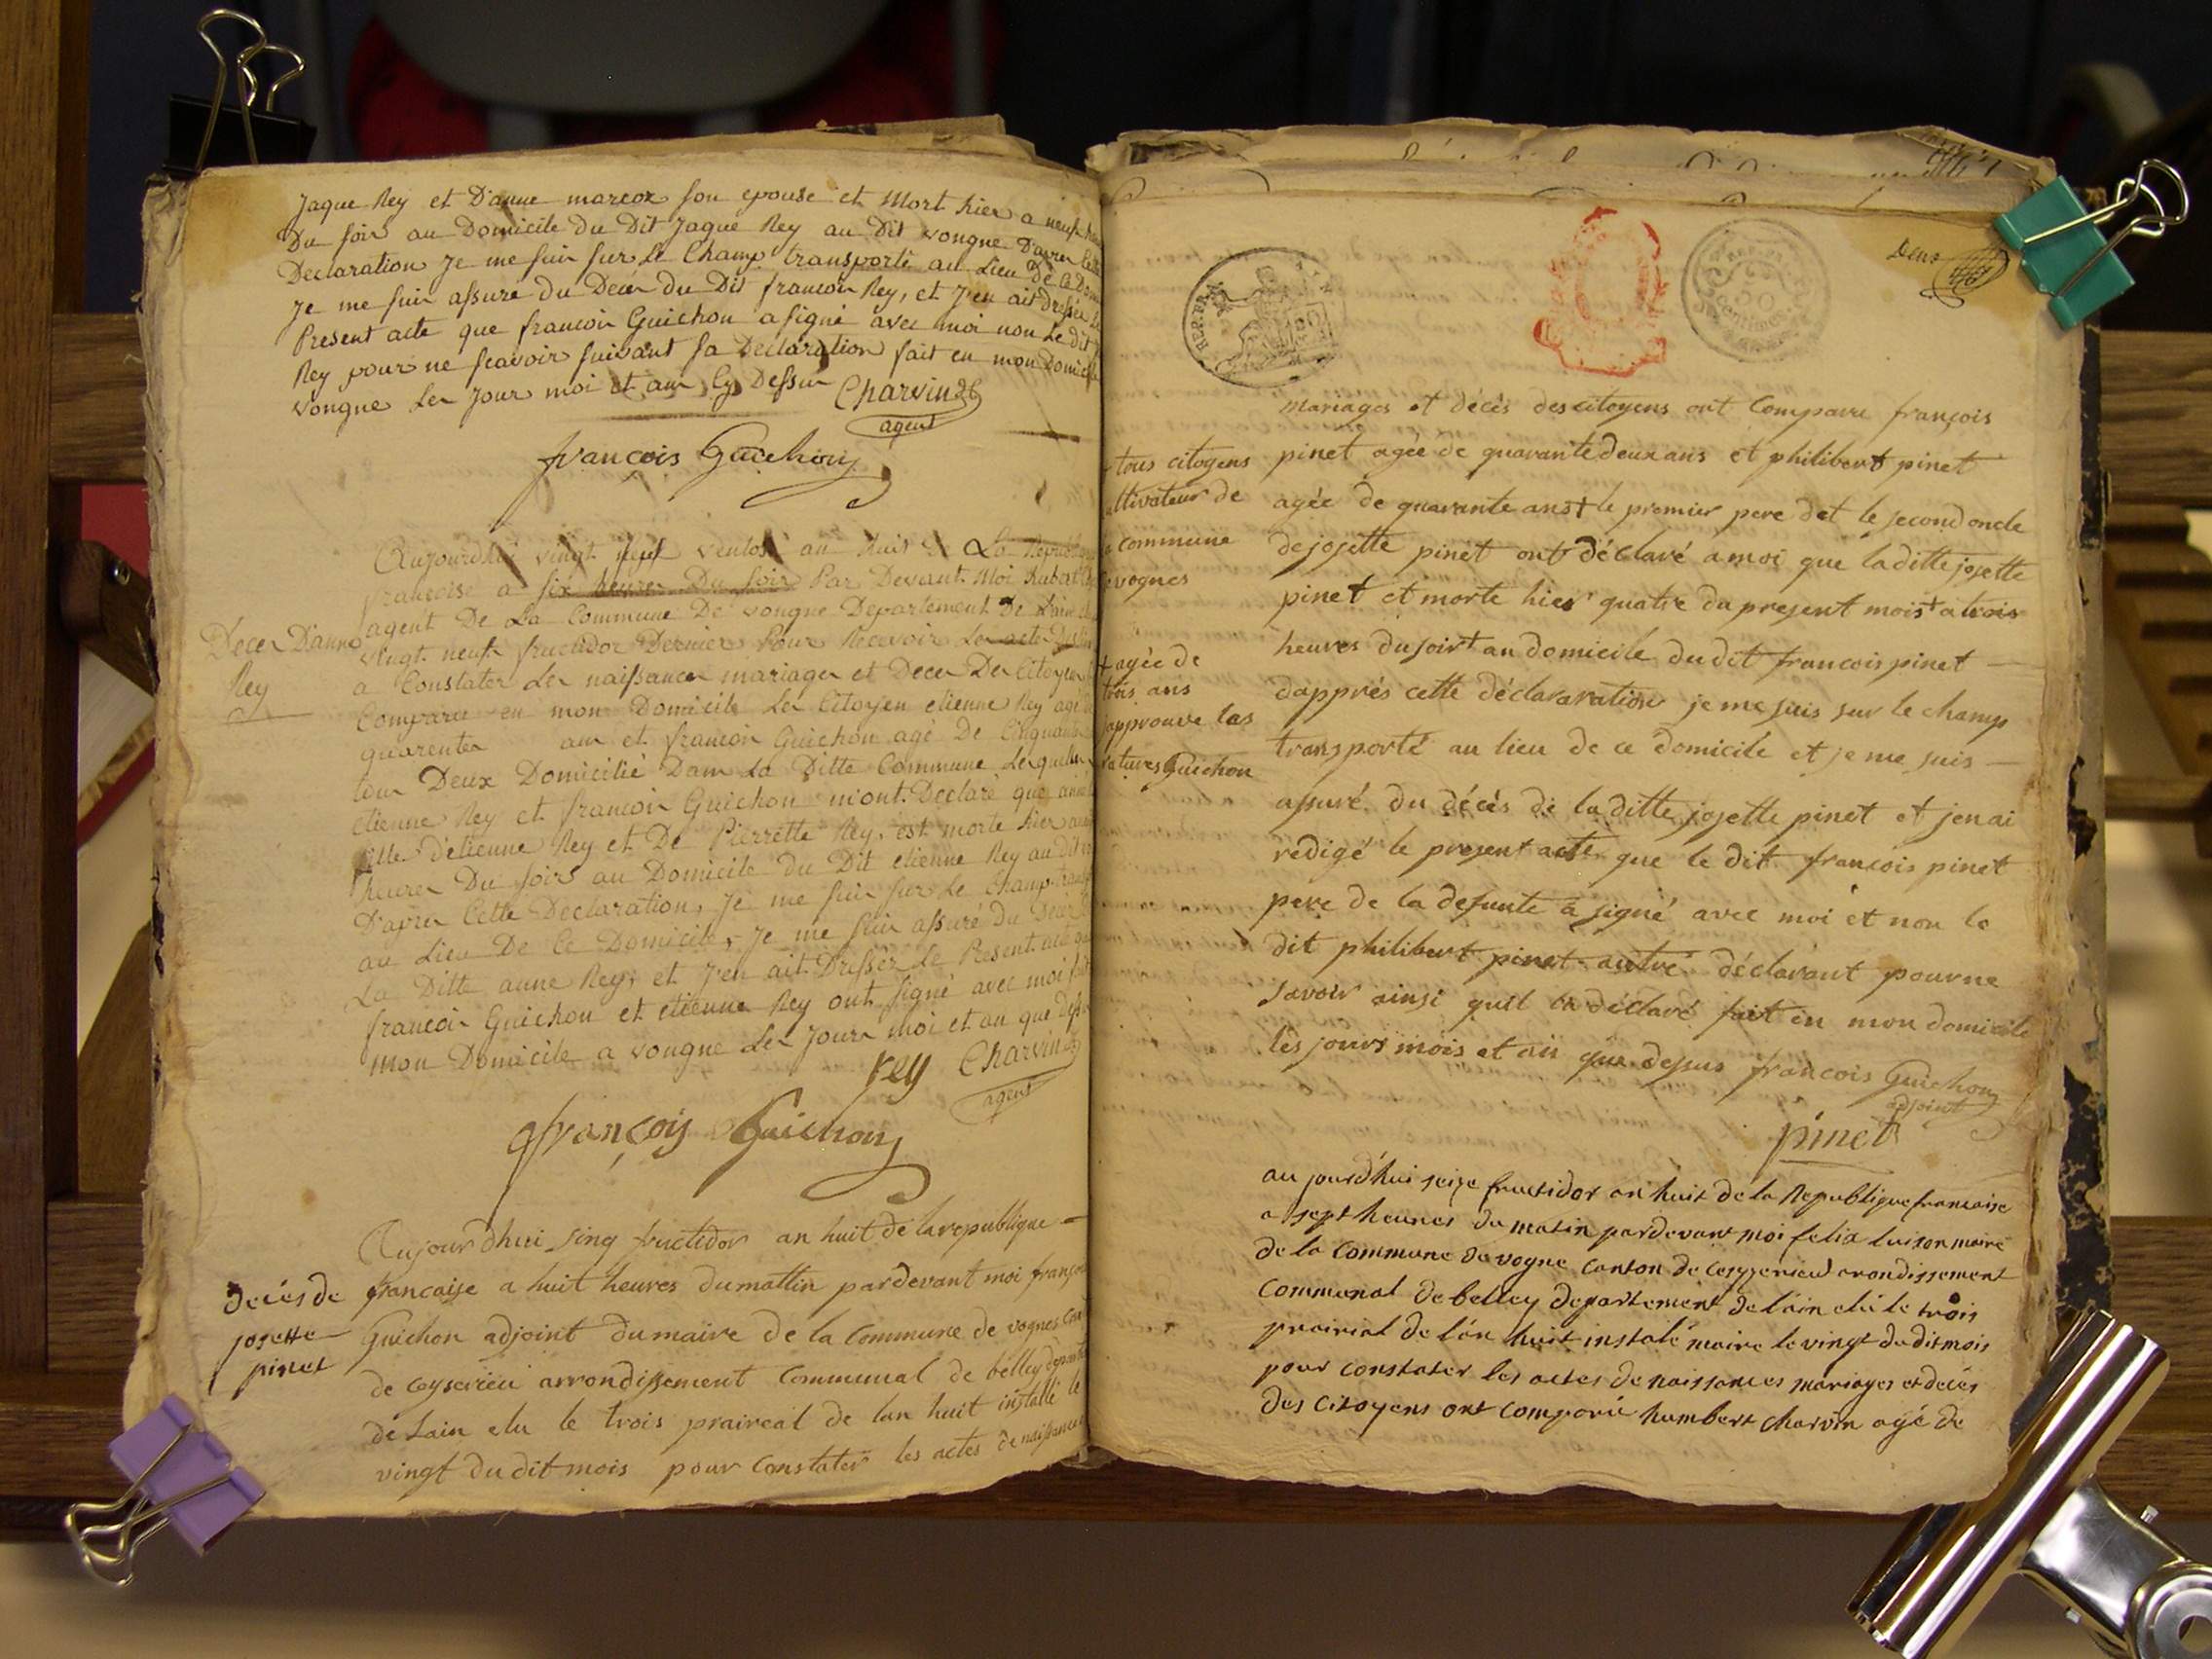 Jaque Rey et D'anne marcox son epouse et Mort hier a neuf
Du soir au Domicile du Dit Jaque Rey au Dit vongne D'apres Cette
Declaration Je me suis sur Le Champ transporté au Lieu De Ce
Je me suis assure du Deces du Dit francois Rey, et J'en ait Dressée
Present acte que francois Guichon a signé avec moi non Le Dit
Rey pour ne scavoir suivant sa Declaration fait en mon Domicile
vongne Les Jour moi et an Cy Dessus Charvin
agent
françois Guichon
Aujourdhui vingt neuf ventose an huit De La Republique
francoise a six heures Du soir Par Devant Moi hubert
agent De La Commune De vongne Departement De Lain
vingt neuf fructidor Dernier Pour Recevoir Les acte
a Constater Les naissances mariages et Deces Des Citoyens
Comparu en mon Domicile Les Citoyen etienne Rey agé
quarentes ans et francois Guichon agé De Cinquante
tous Deux Domicilié Dans La Ditte Commune Lesquels
etienne Rey et francois Guichon m'ont Declaré que
fille d'etienne Rey et De Pierrette Rey, est morte hier
heures Du soirs au Domicile du Dit etienne Rey au dit
D'apres Cette Declaration, Je me suis sur Le Champ
au Lieu De Ce Domicile, Je me suis assuré Du Deces
La Ditte anne Rey, et J'en ait Dressée Le Present acte
francois Guichon et etienne Rey ont signé avec moi fait
mon Domicile a vongne Les Jours moi et an que
Deces D'anne
Rey
rey Charvin
agent
françois Guichon
Aujour dhui sinq fructidor an huit de la republique
francaise a huit heures du mattin pardevant moi françois
Guichon adjoint du maire de la commune de vognes
de ceyserieu arrondissement communal de belley
de Lain elu le trois praireal de lan huit installé le
vingt du dit mois pour constater les actes de naissances
decés de
josette
pinet
REP. FRA.
50
centimes
Deux
mariages et décès des citoyens ont comparu françois
pinet agée de quarante deux ans et philibert pinet
agée de quarante ans + le premier pere det le second oncle
de josette pinet ont déclaré a moi que la ditte josette
pinet et morte hier quatre du present mois + a trois
heures du soir + au domicile du dit francois pinet
dapprés cette déclararation je me suis sur le champ
transporté au lieu de ce domicile et je me suis
assuré du décès de la ditte josette pinet et jen ai
redigé le present acte que le dit francois pinet
pere de la defunte a signé avec moi et non le
dit philibert pinet autre déclarant pour ne
savoir ainsi quil la déclaré fait en mon domicile
les jours mois et an que dessus francois Guichon
adjoint
pinet
tous citoyens
ltivateur de
commune
vognes
+ agée de
trois ans
japprouve las
ratures Guichon
aujourd'hui seize fructidor an huit de la Republique francaise
a sept heures du matin pardevant moi felix luizon maire
de la commune de vogne canton de ceyzerieu arondissement
communal de belley departement de l'ain elu le trois
prairial de l'an huit instalé maire le vingt du dit mois
pour constater les actes de naissances mariages et decés
des citoyens ont comparu humbert charvin agé de